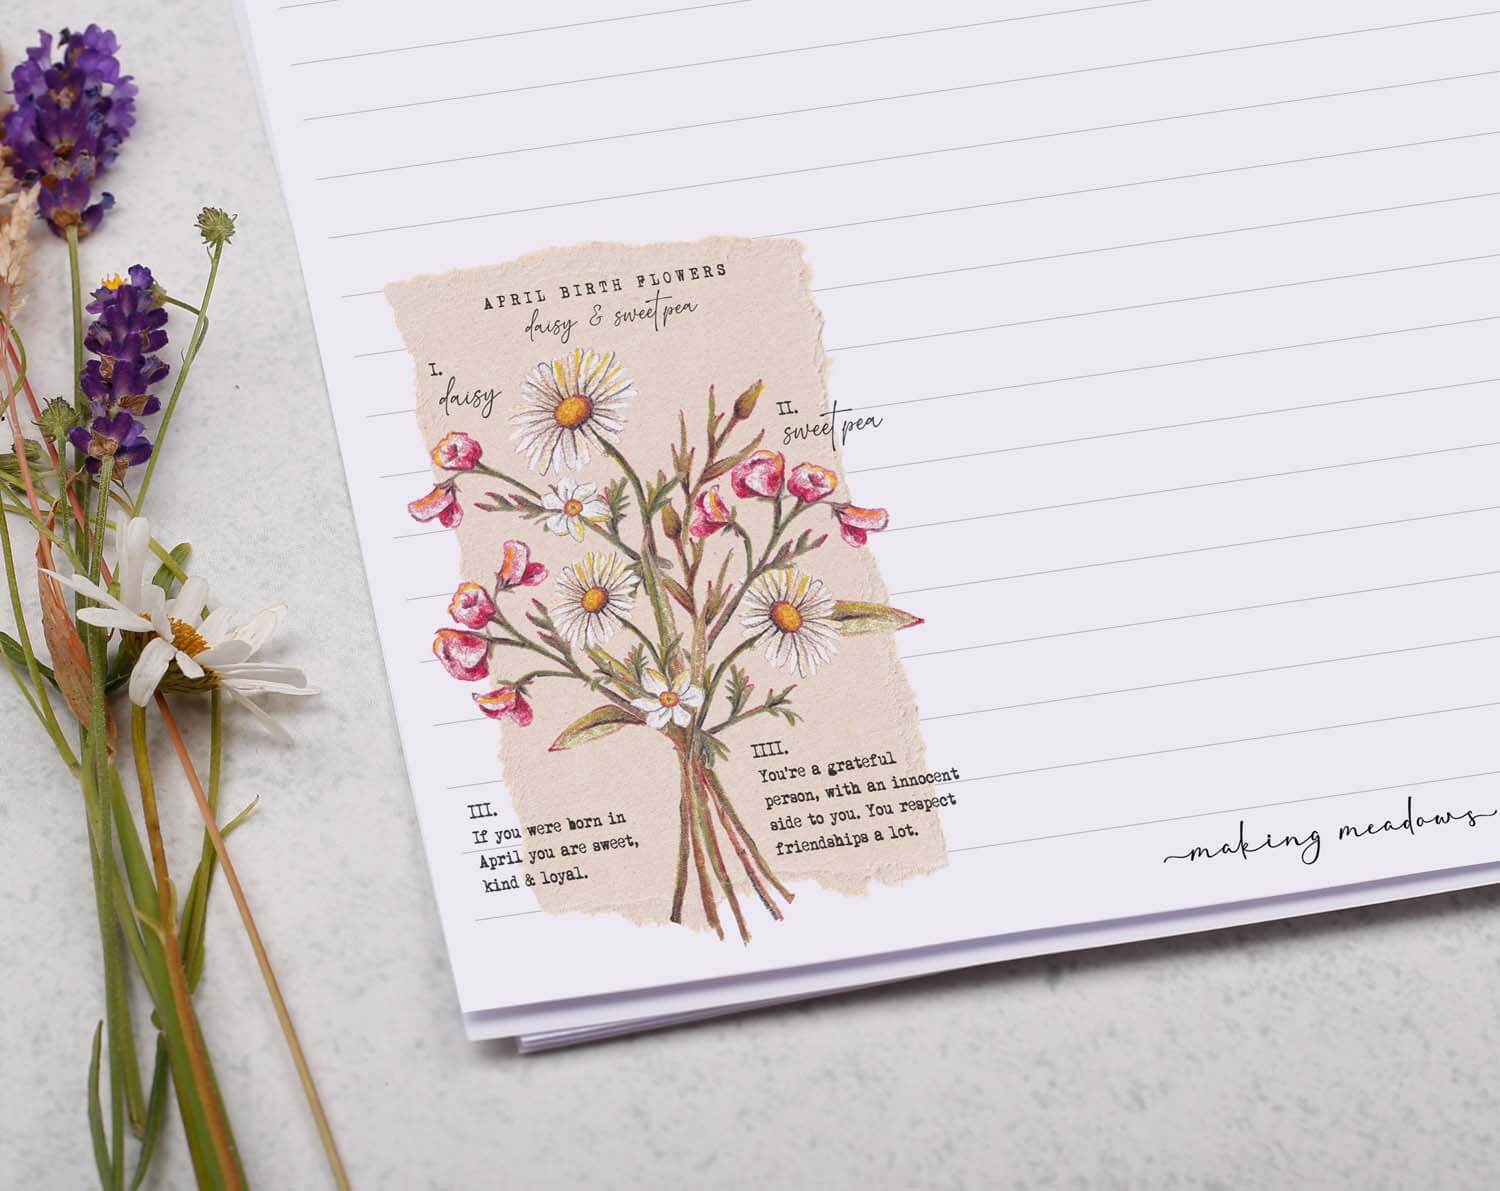 APRIL BIRTH FLOWERS
daisy & sweet pea
I.
daisy
II.
sweet pea
III.
If you were born in
April you are sweet,
kind & loyal.
IIII.
You're a grateful
person, with an innocent
side to you. You respect
friendships a lot.
making meadows